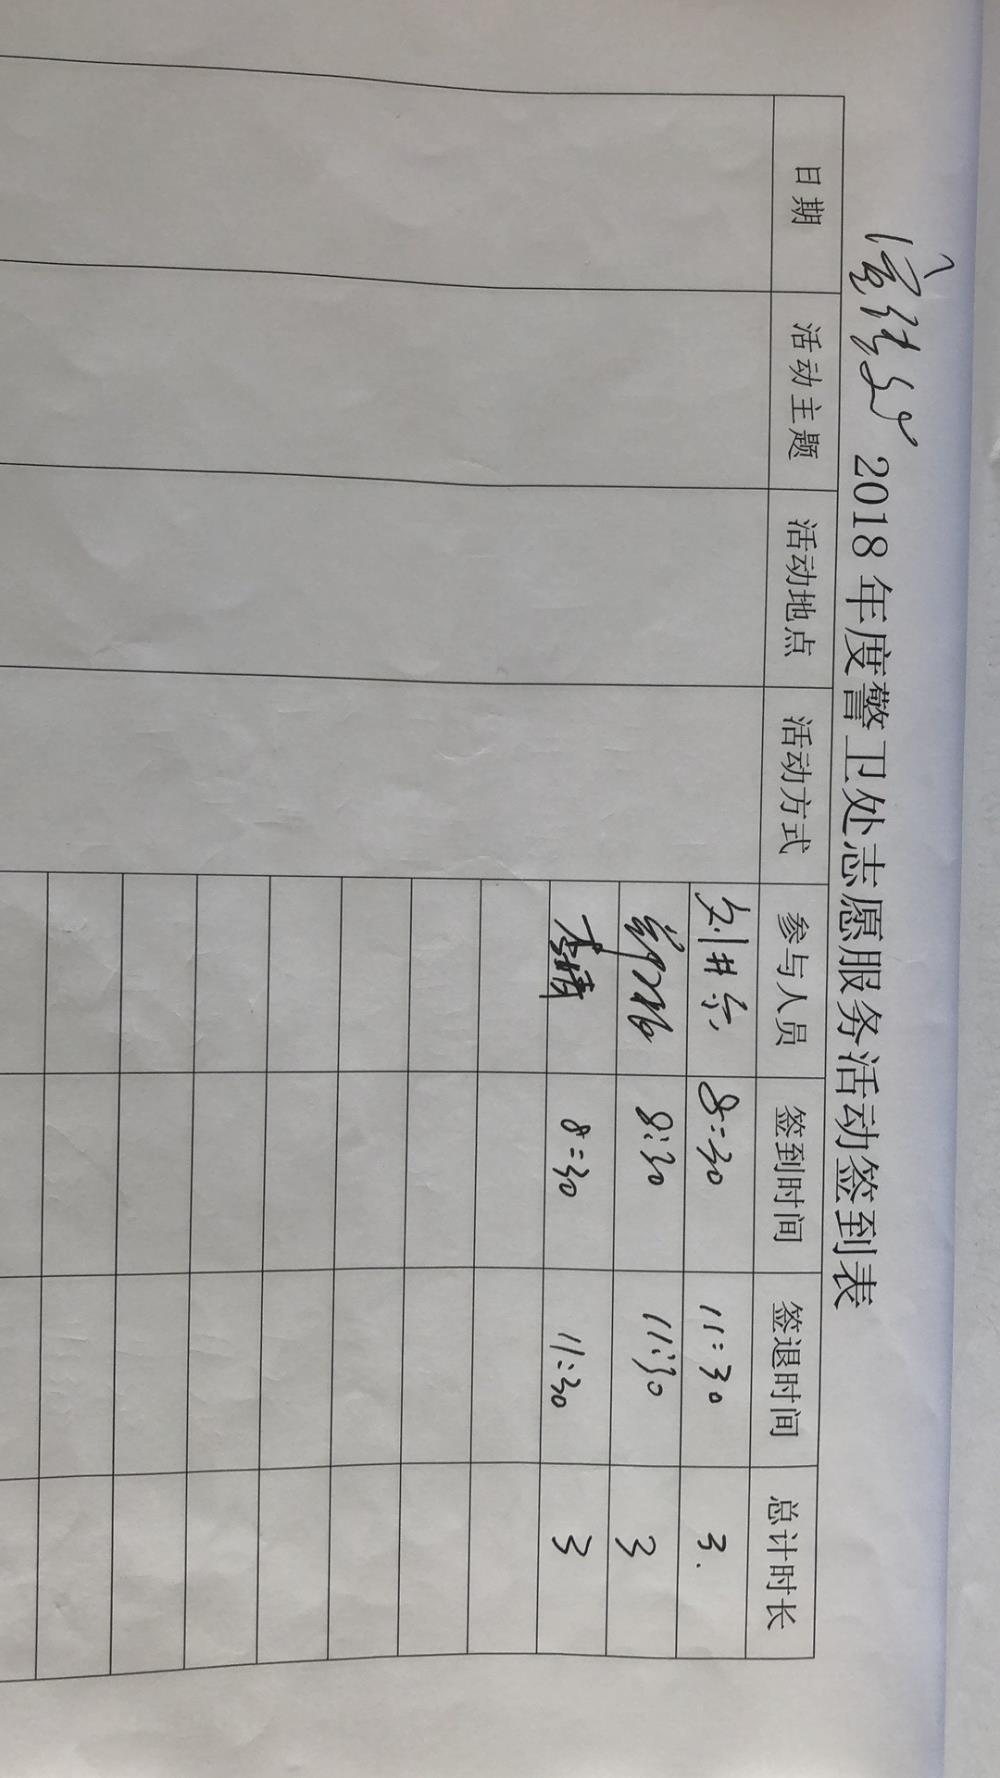 2018年度警卫处志愿服务活动签到表
日期 活动主题 活动地点 活动方式 参与人员 签到时间 签退时间 总计时长
8:30 11:30 3.
8:30 11:30 3
李婧 8:30 11:30 3